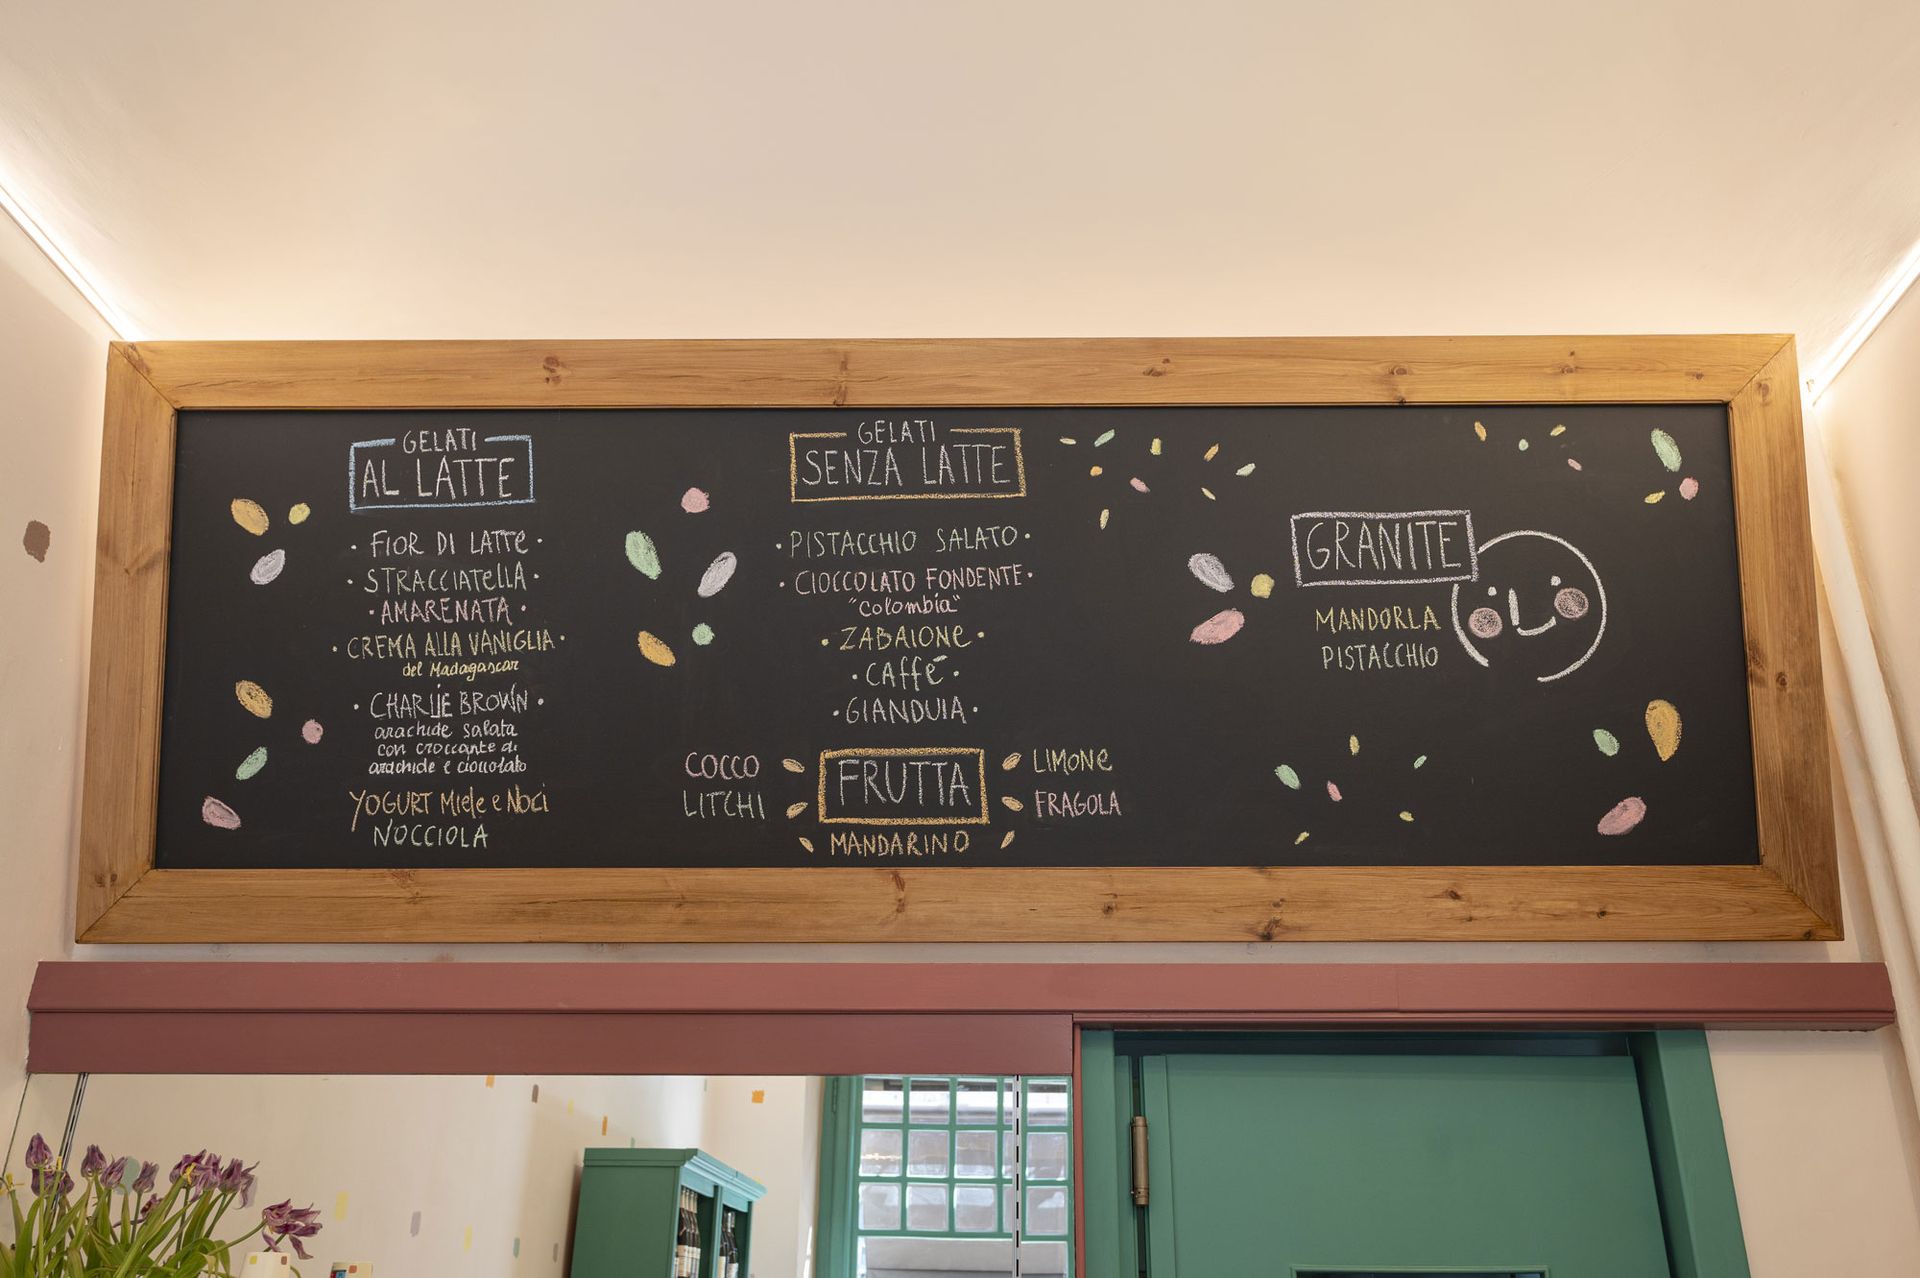 GELATI
AL LATTE
· FIOR DI LATTE ·
· STRACCIATELLA ·
· AMARENATA ·
· CREMA ALLA VANIGLIA ·
del Madagascar
· CHARLIE BROWN ·
arachide salata
con croccante di
arachide e cioccolato
YOGURT Miele e Noci
NOCCIOLA
GELATI
SENZA LATTE
· PISTACCHIO SALATO ·
· CIOCCOLATO FONDENTE ·
"Colombia"
· ZABAIONE ·
· CAFFÉ ·
· GIANDUIA ·
FRUTTA
COCCO
LITCHI
LIMONE
FRAGOLA
MANDARINO
GRANITE
MANDORLA
PISTACCHIO